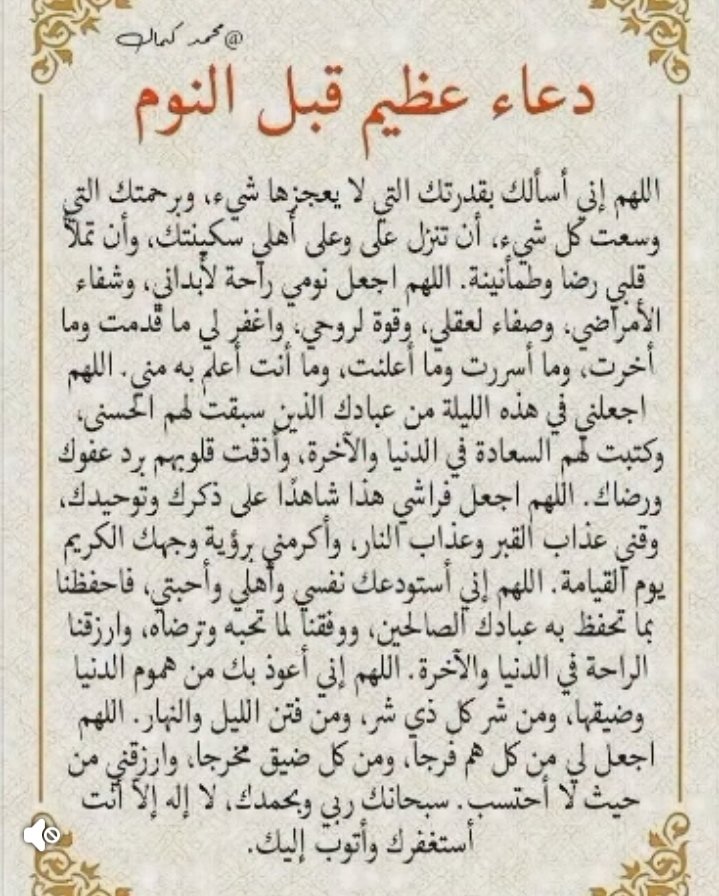 @محمد كمال
دعاء عظيم قبل النوم
اللهم إني أسألك بقدرتك التي لا يعجزها شيء، وبرحمتك التي
وسعت كل شيء، أن تنزل على وعلى أهلي سكينتك، وأن تملأ
قلبي رضا وطمأنينة. اللهم اجعل نومي راحة لأبداني، وشفاء
الأمراضي، وصفاء لعقلي، وقوة لروحي، واغفر لي ما قدمت وما
أخرت، وما أسررت وما أعلنت، وما أنت أعلم به مني. اللهم
اجعلني في هذه الليلة من عبادك الذين سبقت لهم الحسنى،
وكتبت لهم السعادة في الدنيا والآخرة، وأذقت قلوبهم برد عفوك
ورضاك. اللهم اجعل فراشي هذا شاهدًا على ذكرك وتوحيدك،
وقني عذاب القبر وعذاب النار، وأكرمني برؤية وجهك الكريم
يوم القيامة. اللهم إني أستودعك نفسي وأهلي وأحبتي، فاحفظنا
بما تحفظ به عبادك الصالحين، ووفقنا لما تحبه وترضاه، وارزقنا
الراحة في الدنيا والآخرة. اللهم إني أعوذ بك من هموم الدنيا
وضيقها، ومن شر كل ذي شر، ومن فتن الليل والنهار. اللهم
اجعل لي من كل هم فرجا، ومن كل ضيق مخرجا، وارزقني من
حيث لا أحتسب. سبحانك ربي وبحمدك، لا إله إلا أنت
أستغفرك وأتوب إليك.